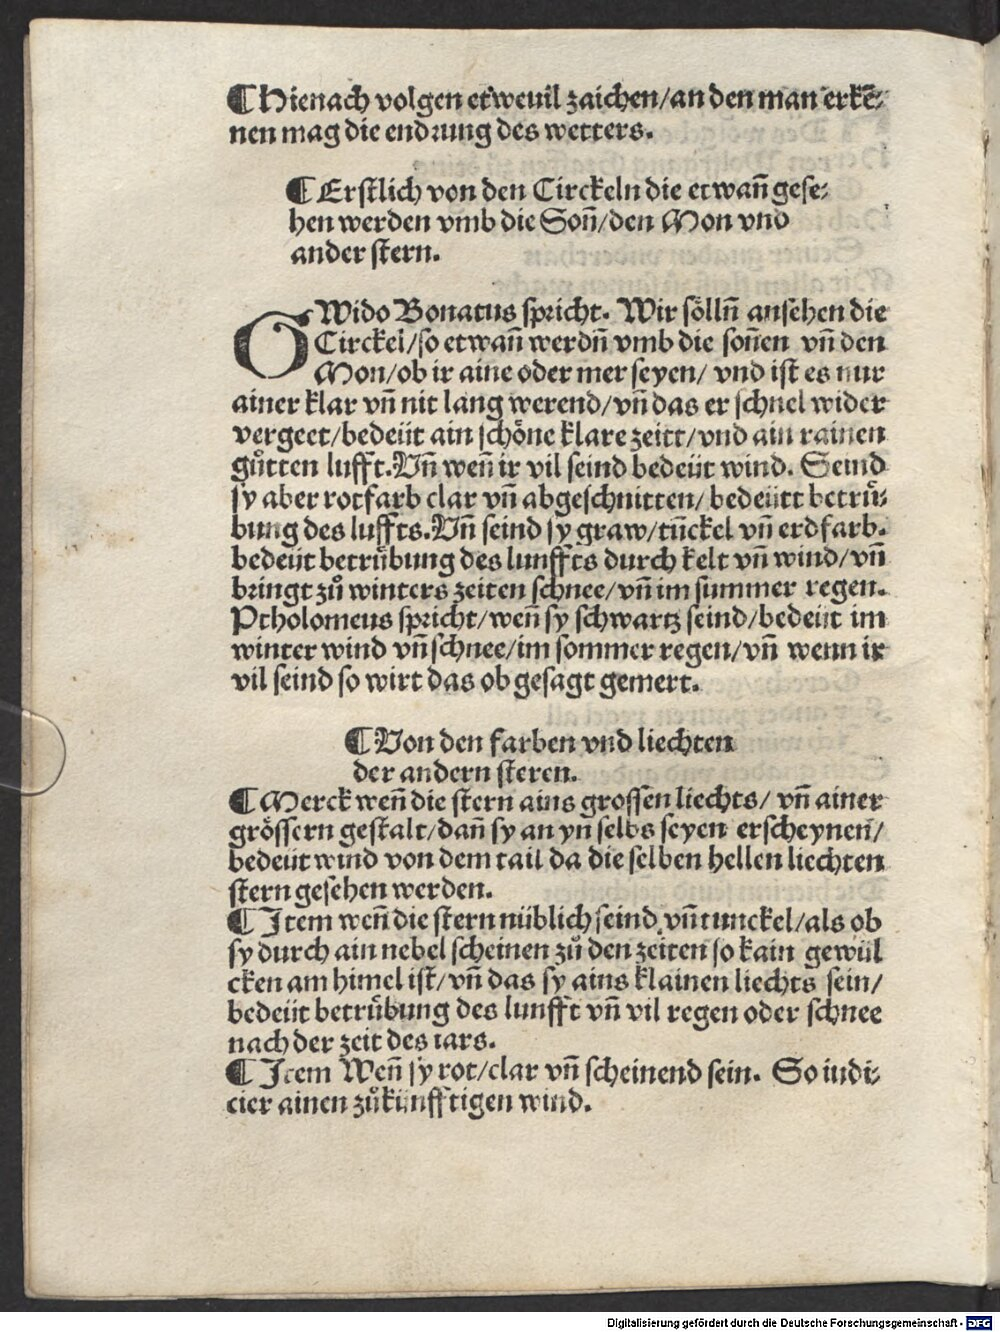 ¶Hienach volgen etweuil zaichen/an den man erkē⸗
nen mag die endrung des wetters.
¶Erstlich von den Circkeln die etwañ gese⸗
hen werden vmb die Soñ/den Mon vnd
ander stern.
GWido Bonatus spricht. Wir sölln̄ ansehen die
Circkel/so etwañ werdn̄ vmb die soñen vn̄ den
Mon/ob ir aine oder mer seyen/ vnd ist es nur
ainer klar vn̄ nit lang werend/vn̄ das er schnel wider
vergeet/bedeüt ain schöne klare zeitt/vnd ain rainen
gůtten lufft.Vn̄ weñ ir vil seind bedeüt wind. Seind
sy aber rotfarb clar vn̄ abgeschnitten/bedeütt betrů⸗
bung des luffts.Vn̄ seind sy graw/tūckel vn̄ erdfarb.
bedeüt betrůbung des lunffts durch kelt vn̄ wind/vn̄
bringt zů winters zeiten schnee/vn̄ im summer regen.
Ptholomeus spricht/weñ sy schwartz seind/bedeüt im
winter wind vn̄ schnee/im sommer regen/vn̄ wenn ir
vil seind so wirt das ob gesagt gemert.
¶Von den farben vnd liechten
der andern steren.
¶Merck weñ die stern ains grossen liechts/ vn̄ ainer
grössern gestalt/dañ sy an yn selbs seyen erscheynen/
bedeüt wind von dem tail da die selben hellen liechten
stern gesehen werden.
¶Item weñ die stern nüblich seind vn̄ tunckel/als ob
sy durch ain nebel scheinen zů den zeiten so kain gewül
cken am himel ist/vn̄ das sy ains klainen liechts sein/
bedeüt betrůbung des lunfft vn̄ vil regen oder schnee
nach der zeit des iars.
¶Item Weñ sy rot/clar vn̄ scheinend sein. So iudi⸗
cier ainen zůkünfftigen wind.
Digitalisierung gefördert durch die Deutsche Forschungsgemeinschaft - DFG